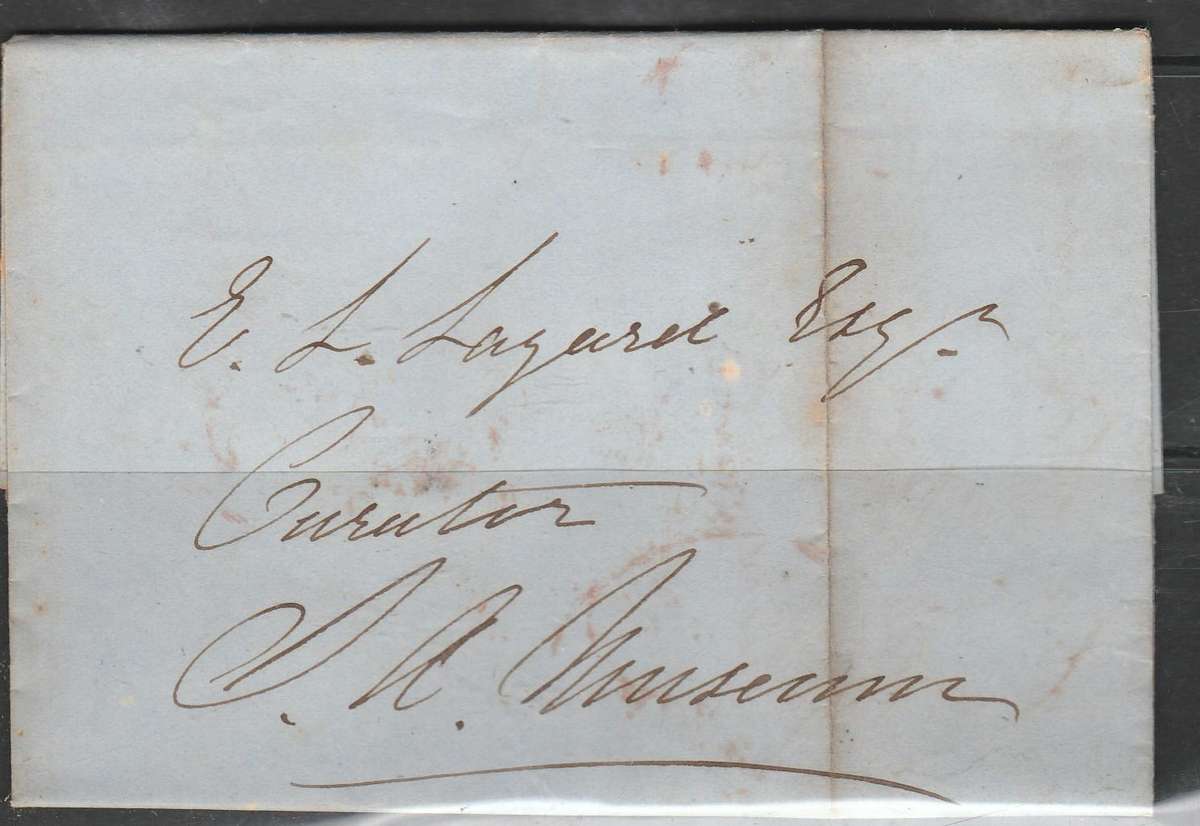 E. L. Layard Esq.
Curator
S. A. Museum